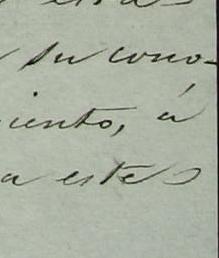 su cono-
ciento, á
a estes